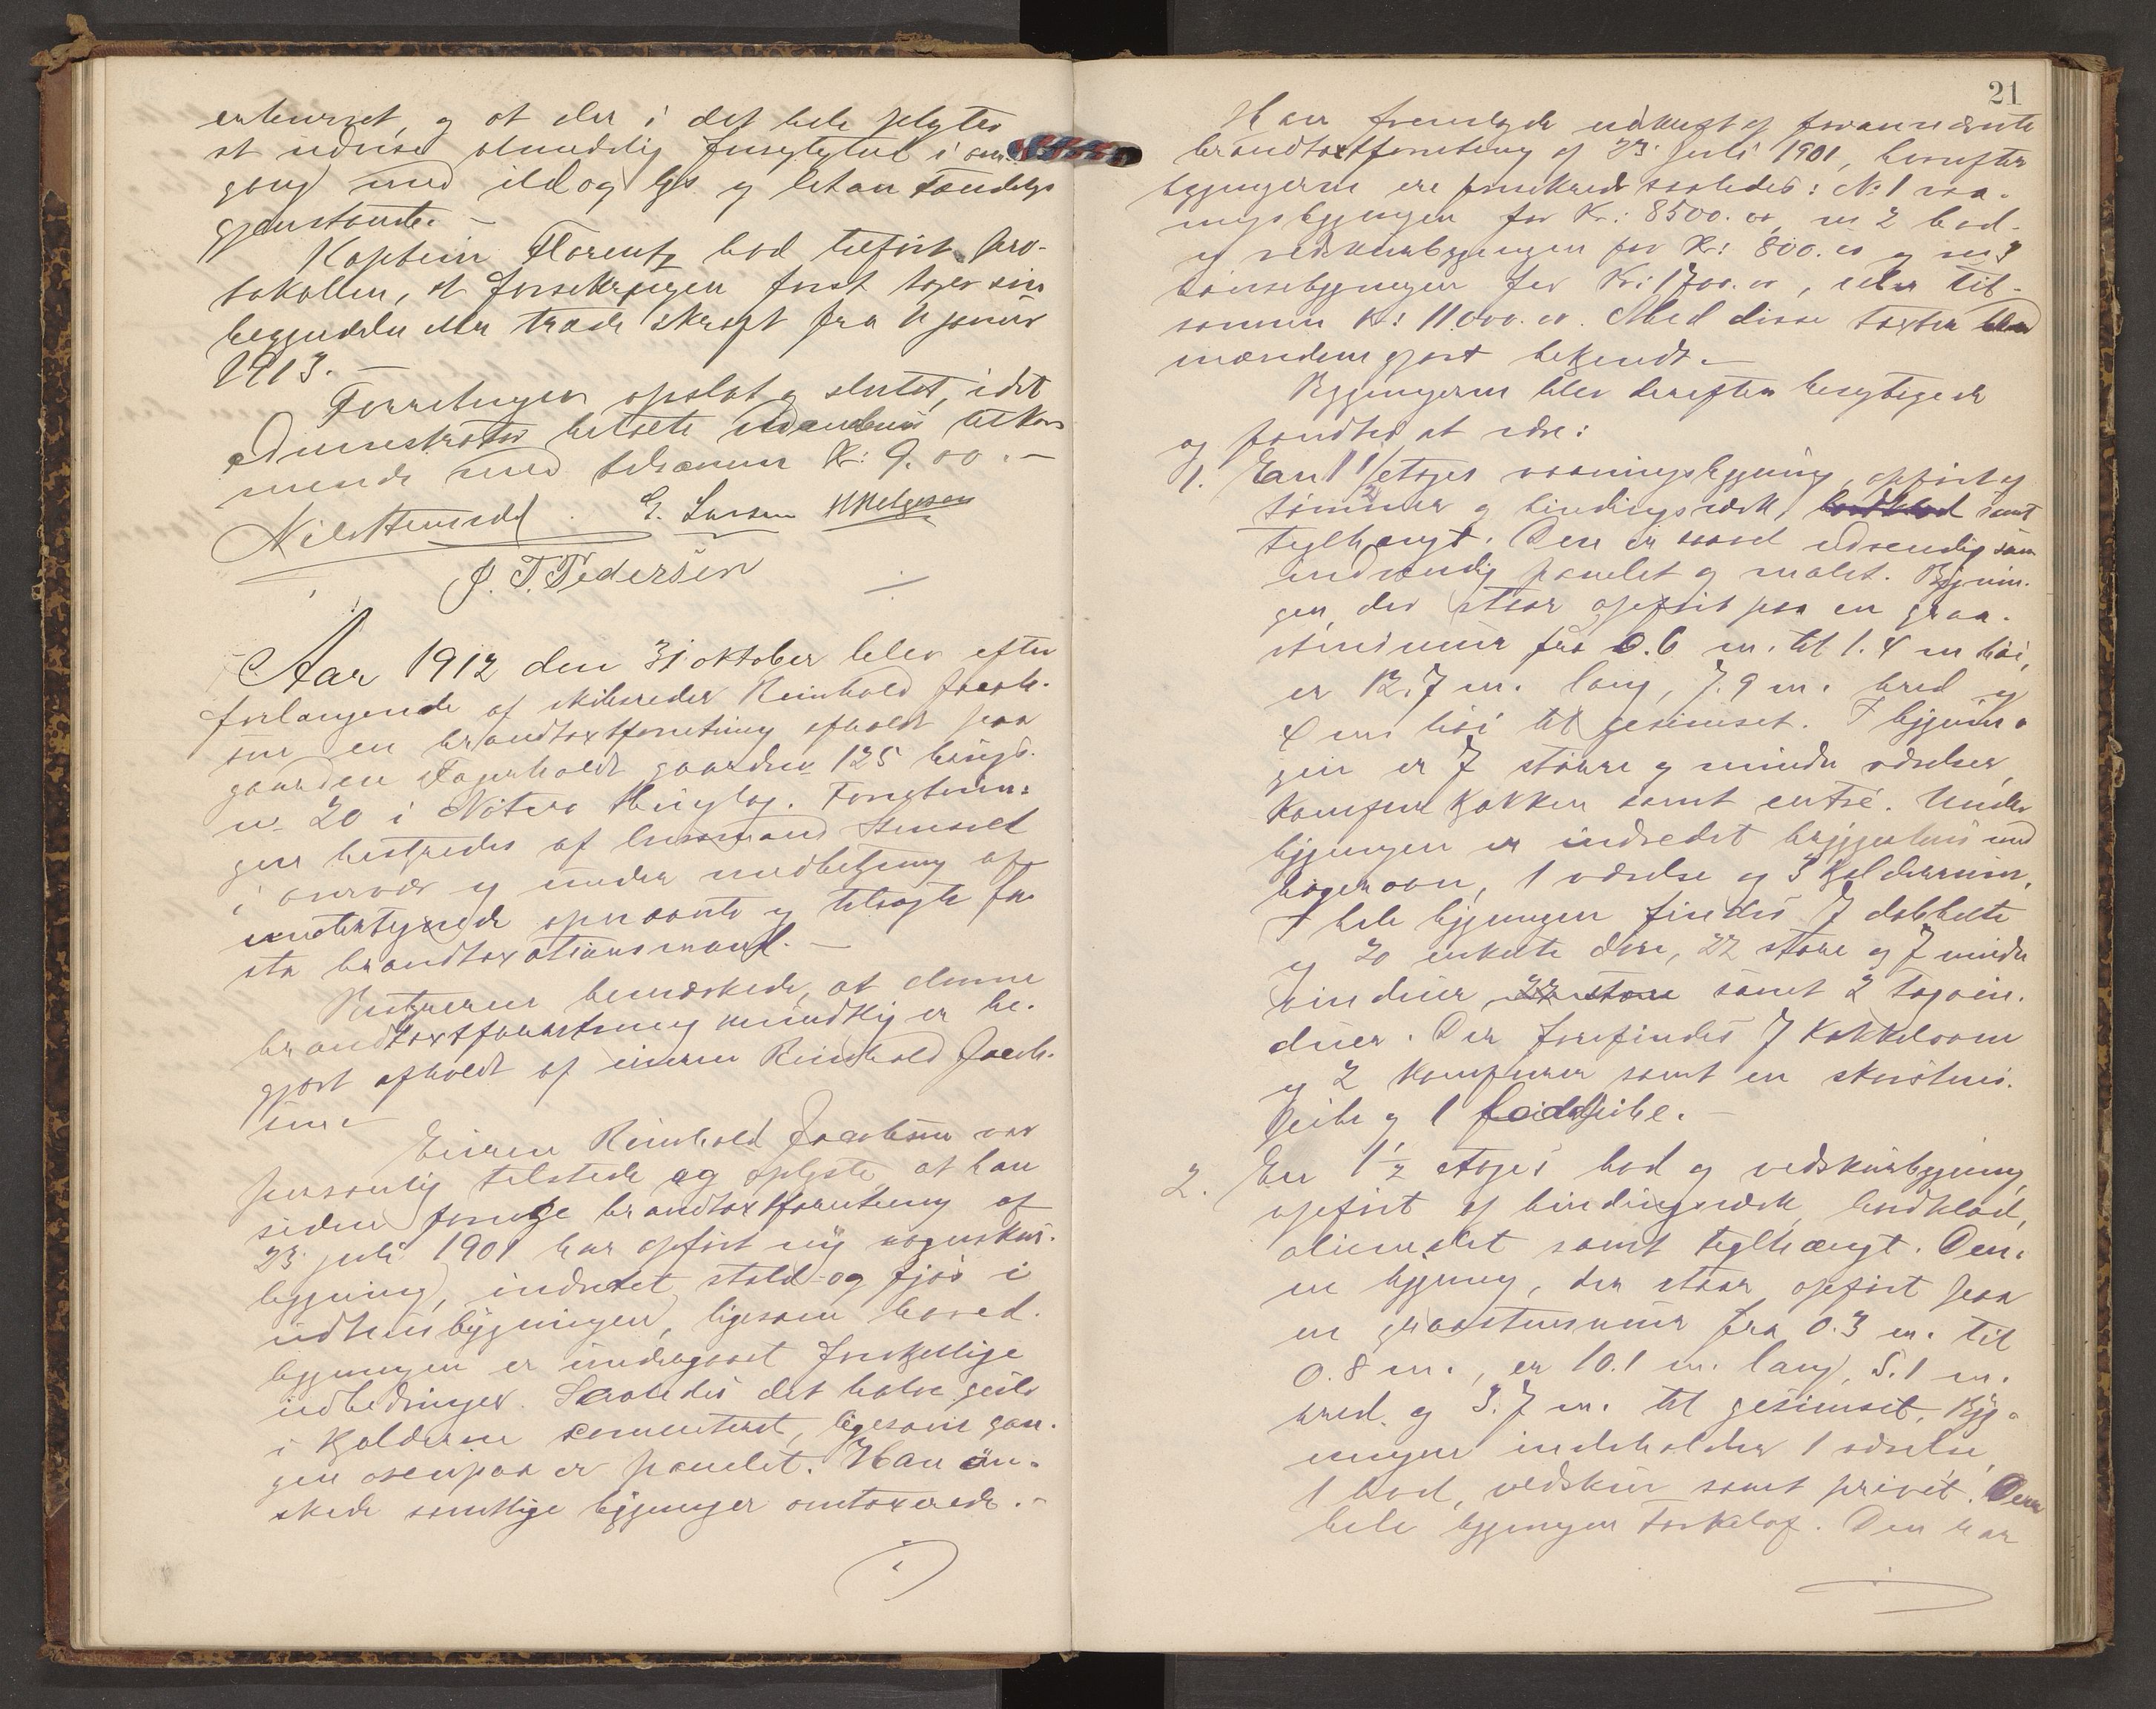 erhværvet, og at der i det hele pligtes
at udvise almindelig forsigtighed i om-
gang med ild og lys og letantændelige
gjenstande. –
Kaptein Florentz bad tilført pro-
tokollen, at forsikringen først tager sin
begyndelse eller træde i kraft fra 1 januar
1913. –
Forretningen oplæst og sluttet, idet
Administrator betalte mændenes tilkom-
mende med tilsammen Kr: 9.00. –
Nils Hemsedal. E. Larsen H Helgesen
J. T. Pedersen
Aar 1912 den 31 oktober blev efter
forlangende af skibsreder Reinhold Jacob-
sen en brandtaxtforretning afholdt paa
gaarden Fagerholdt gaardsn. 125 brugs-
n. 20 i Nøterø thinglag. Forretnin-
gen bestyredes af lensmand Hemsedal
i overvær og under medbetjening af
undertegnede opnævnte og tilsagte fa-
ste brandtaxationsmænd. –
Bestyreren bemærkede, at denne
brandtaxtforretning mundtlig er be-
gjært afholdt af eieren Reinhold Jacob-
sen. –
Eieren Reinhold Jacobsen var
personlig tilstede og oplyste, at han
siden forrige brandtaxtforretning af
23 juli 1901 har opført ny vognskur-
bygning, indredet stald og fjøs i
udhusbygningen, ligesom hoved-
bygningen er undergaaet forskjellige
udbedringer. Saaledes det halve gulv
i kjelderen cementeret, ligesom gan-
gen ovenpaa er panelet. Han øn-
skede samtlige bygninger omtaxerede. –
21
Han fremlagde udskrift af forannævnte
brandtaxtforretning af 23 juli 1901, hvorefter
bygningerne ere forsikrede saaledes: No 1 vaa-
ningsbygningen for Kr: 8500.00, no 2 bod-
og vedskurbygningen for Kr: 800.00 og no 3
hønsebygningen for Kr: 1700.00, eller til-
sammen Kr: 11000.00. Med disse taxter blev
mændene gjort bekjendt. –
Bygningerne blev derefter besigtigede
og fandtes at være:
1. En 1 1/2 etages vaaningsbygning, opført af
tømmer og bindingsværk, bordklæd samt
teglhængt. Den er saavel udvendig som
indvendig panelet og malet. Bygnin-
gen, der staar opført paa en graa-
stensmur fra 0.6 m. til 1.4 m høi,
er 12.7 m. lang, 7.9 m. bred og
4 m høi til gesimset. I bygnin-
gen er 7 større og mindre værelser,
komfurkjøkken samt entré. Under
bygningen er indredet bryggerhus med
bagerovn, 1 værelse og 3 kjelderrum.
I hele bygningen findes 7 dobbelte
og 20 enkelte døre, 22 store og 7 mindre
vinduer 22 store samt 2 tagvin-
duer. Der forefindes 7 kakkelovne
og 2 komfurer samt en skorstens-
pibe og 1 faldpibe. –
2. En 1 1/2 etages bod og vedskurbygning,
opført af bindingsværk, bordklæd,
oliemalet samt teglhængt. Den-
ne bygning, der staar opført paa
en graastensmur fra 0.3 m. til
0.8 m., er 10.1 m. lang, 5.1 m.
bred og 3.7 m. til gesimset. Byg-
ningen indeholder 1 værelse,
1 bod, vedskur samt privét. Over
hele bygningen tørkeloft. Den har